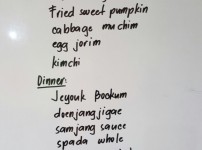 Fried sweet pumpkin
cabbage muchim
egg jorim
kimchi
Dinner:
Jeyouk Bookum
doenjangjigae
samjang sauce
spada whole